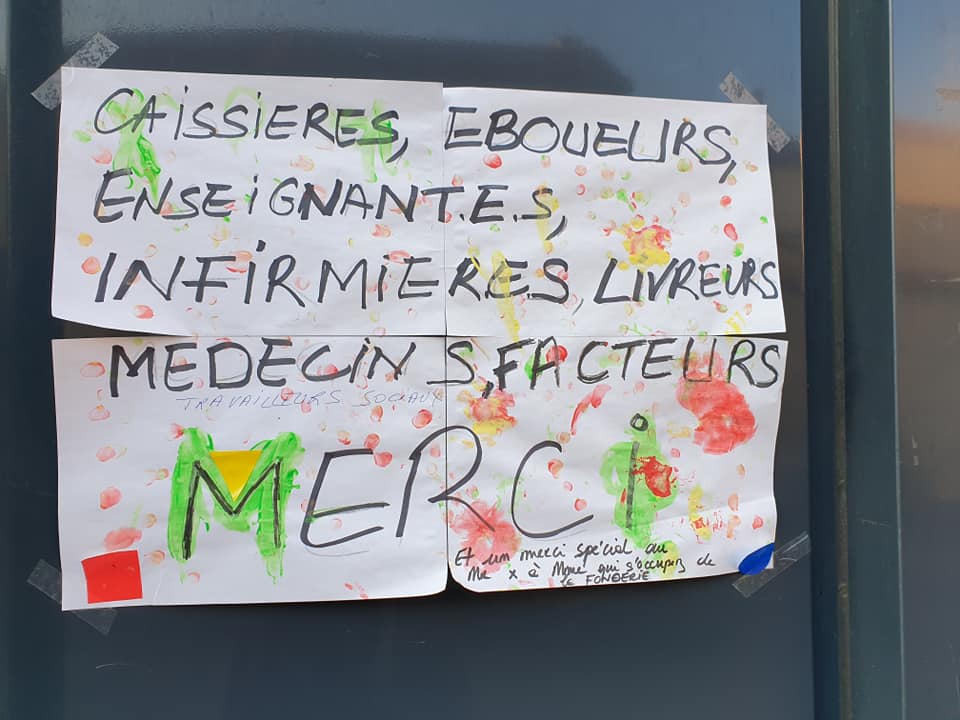 CAISSIERES, EBOUEURS,
ENSEIGNANT.E.S,
INFIRMIERES, LIVREURS
MEDECINS, FACTEURS
TRAVAILLEURS SOCIAUX
MERCI
Et un merci spécial au
Mr x à Mme qui s'occupez de
la FONDERIE